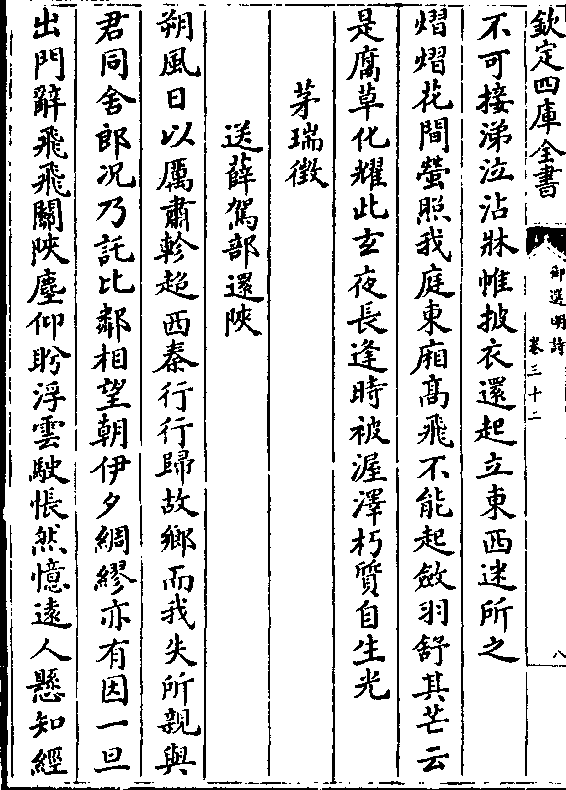 欽定四庫全書
御選明詩
卷三十二
八
不可接涕泣沾牀帷披衣還起立東西迷所之
熠熠花間螢照我庭東廂髙飛不能起斂羽舒其芒云
是腐草化耀此玄夜長逢時被渥澤朽質自生光
茅瑞徵
送薛駕部還陜
朔風日以厲肅軫超西秦行行歸故鄉而我失所親與
君同舍郎况乃託比鄰相望朝伊夕綢繆亦有因一旦
出門辭飛飛關陜塵仰盻浮雲駛悵然憶遠人懸知經